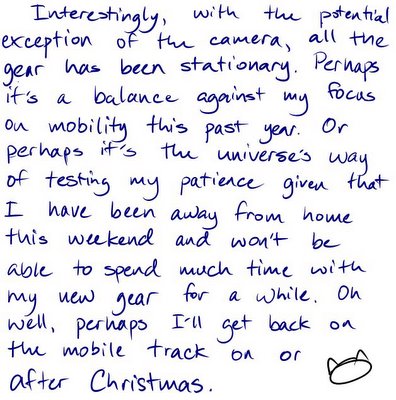 Interestingly, with the potential
exception of the camera, all the
gear has been stationary. Perhaps
it's a balance against my focus
on mobility this past year. Or
perhaps it's the universe's way
of testing my patience given that
I have been away from home
this weekend and won't be
able to spend much time with
my new gear for a while. Oh
well, perhaps I'll get back on
the mobile track on or
after Christmas.